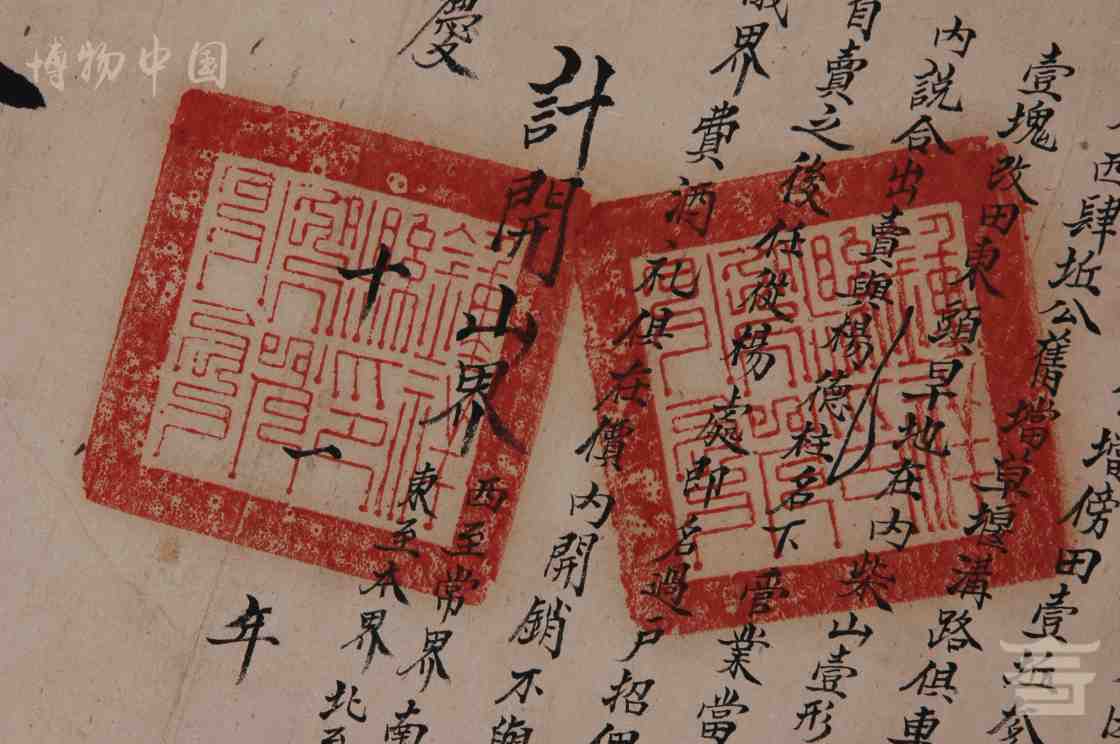 博物中国
壋傍田壹坵叁
西肆坵公舊壋草堰溝路俱車
壹塊改田東頭旱地在內柴山壹形
內說合出賣與楊德柱名下管業當
自賣之後任從楊處即名過戶招佃
界費酒礼俱在價內開銷不與
計開山界
西至常界南
東至本界北至
慶十一年